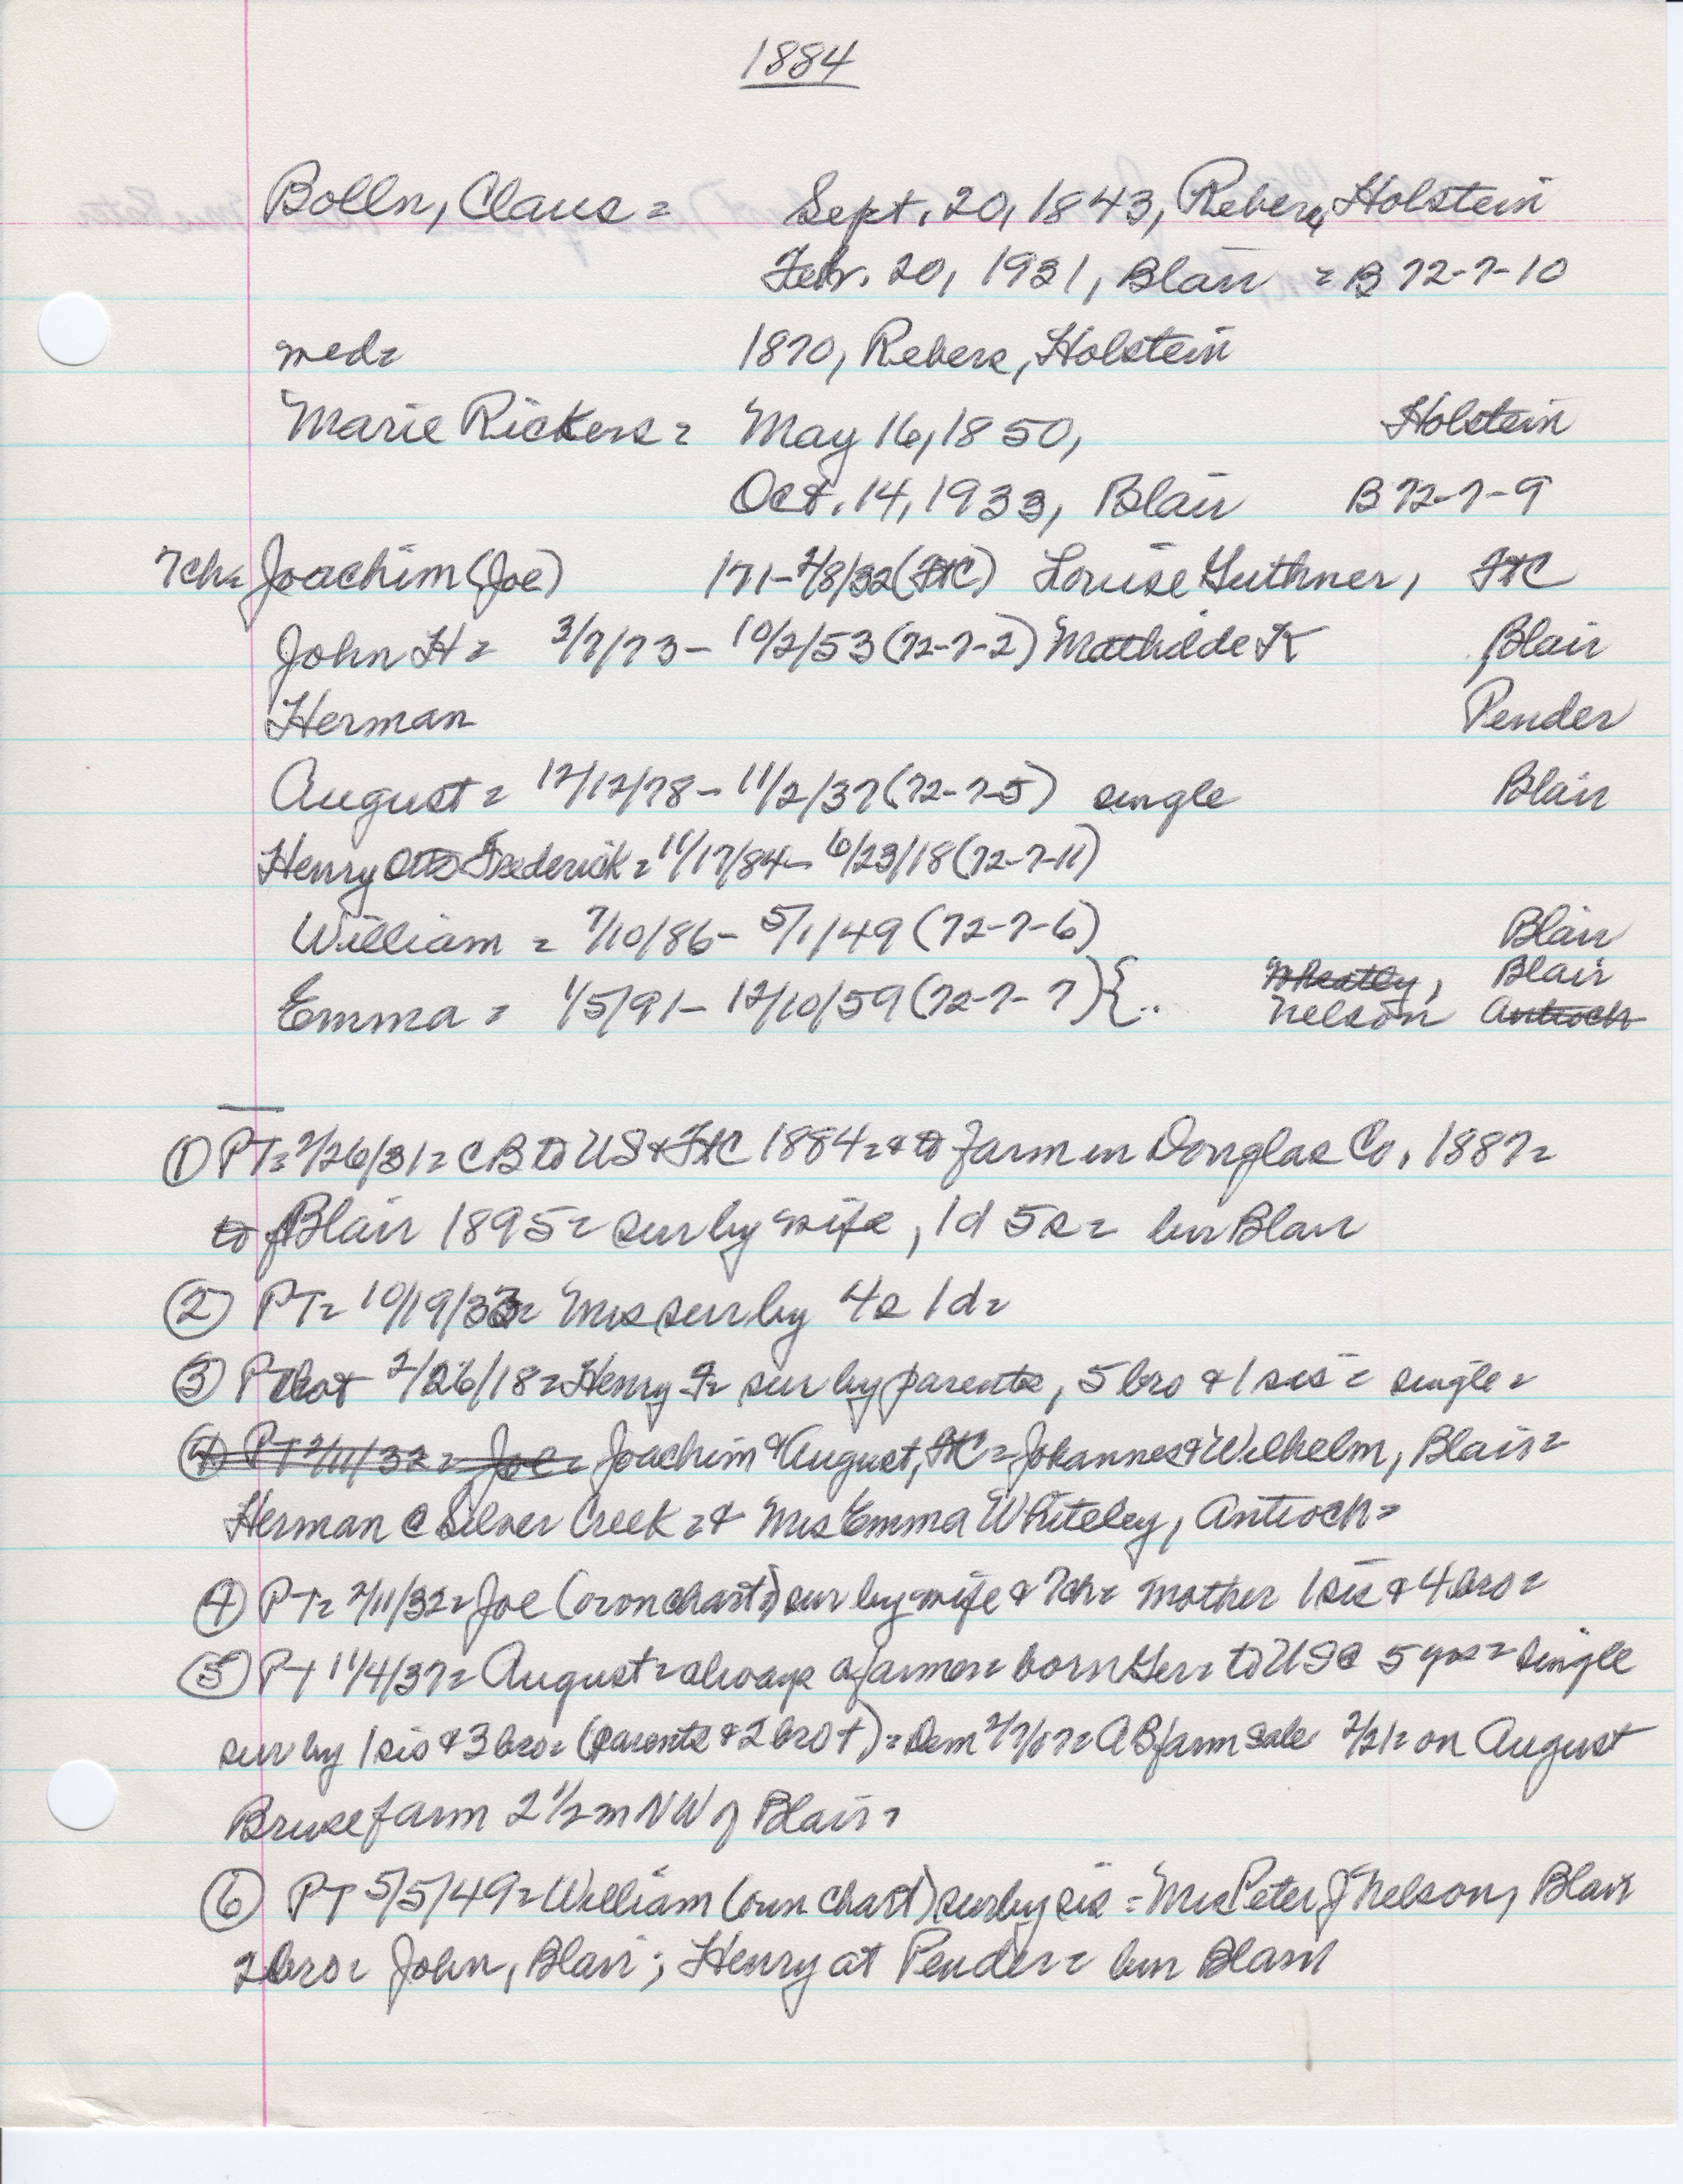 1884
Bolln, Claus = Sept. 20, 1843, Rebers, Holstein
Feb. 20, 1931, Blair = B 72-7-10
med= 1870, Rebers, Holstein
Marie Rickers = May 16, 1850, Holstein
Oct. 14, 1933, Blair B 72-7-9
7ch= Joachim (Joe) 171-2/8/32 (FtC) Louise Guthner, FtC
John H = 3/7/73 - 10/2/53 (72-7-2) Mathilde K Blair
Herman Pender
August = 12/12/78 - 11/2/37 (72-7-5) single Blair
Henry Otto Frederick = 11/17/84 - 6/23/18 (72-7-11)
William = 7/10/86 - 5/1/49 (72-7-6) Blair
Wheatley, Blair
Emma = 1/5/91 - 12/10/59 (72-7-7) }{.. Nelson Antioch
① PT= 2/26/31= CB to US & FtC 1884= & to farm in Douglas Co. 1887=
to Blair 1895= sur by wife, 1d 5s= bur Blair
② PT= 10/19/33= Mrs sur by 4s 1d=
③ P 2/26/18= Henry F= sur by parents, 5 bro & 1 sis = single =
④ PT 2/11/32 = Joe = Joachim & August, FtC = Johannes & Wilhelm, Blair =
Herman @ Silver Creek = & Mrs Emma Whiteley, Antioch =
④ PT= 2/11/32= Joe (own chart) sur by wife & 7ch= mother 1 sis & 4 bro=
⑤ PT 11/4/37= August = always a farmer= born Ger= to US @ 5 yrs= single
sur by 1 sis & 3 bro= (parents & 2 bro †) = Dem 2/7/07= AB farm sale 2/21= on August
Bruse farm 2 1/2 m NW of Blair =
⑥ PT 5/5/49= William (own chart) sur by sis = Mrs Peter J Nelson, Blair
2 bro= John, Blair; Henry at Pender = bur Blair